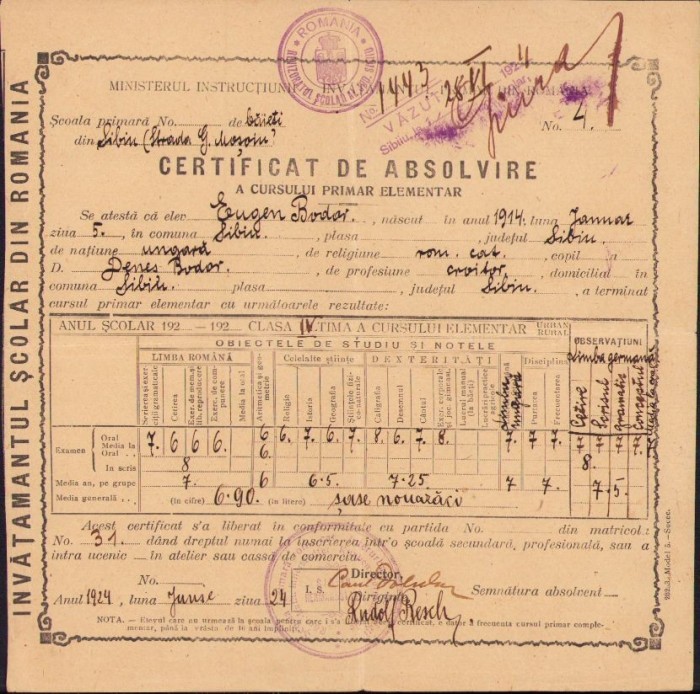 ROMANIA
MINISTERUL INSTRUCȚIUNII
No. 1443
VĂZUT
28 VI 1924
Sibiu,
Școala primară No. de băieți
No. 4.
din Sibiu (Strada G. Moșoiu)
CERTIFICAT DE ABSOLVIRE
A CURSULUI PRIMAR ELEMENTAR
Se atestă că elev Eugen Bodor, născut în anul 1914 luna Januar
ziua 5. în comuna Sibiu, plasa , județul Sibiu.
de națiune ungară , de religiune rom. cat. , copil a
D. Denes Bodor. , de profesiune croitor, domiciliat în
comuna Sibiu, plasa , județul Sibiu. a terminat
cursul primar elementar cu următoarele rezultate:
ANUL ȘCOLAR 192 — 192 CLASA IV TIMA A CURSULUI ELEMENTAR URBAN RURAL
OBIECTELE DE STUDIU ȘI NOTELE
OBSERVAȚIUNI
LIMBA ROMÂNĂ Celelalte științe DEXTERITĂȚI Disciplina Limba germană
Citirea
Media la oral
Religie
Istoria
Geografia
Caligrafia
Desemnul
Cântul
Purtarea
Frecventarea
Cetire
Scrisul
Gramatic
Examen Oral 7. 6 6 6. 6 6. 7. 6. 7. 8. 6. 7. 8. 7 7
Media la Oral 6.
În scris 8 8.
Media an. pe grupe 7. 6·5. 7·25. 7 7. 7·5
Media generală (în cifre) 6·90. (în litere) șase nouăzăci
Acest certificat s'a liberat în conformitate cu partida No. din matricol:
No. 31. dând dreptul numai la înscrierea într'o școală secundară, profesională, sau a
intra ucenic în atelier sau cassă de comerciu.
No. Director,
Anul 1924, luna Junie ziua 24 L. s. Diriginte, Semnătura absolvent
Rudolf Resch
NOTA. — Elevul care nu urmează la școala pentru care i s'a certificat, e dator a frecuenta cursul primar comple-
mentar, până la vrâsta de 16 ani împliniți.
INVĂTAMANTUL ȘCOLAR DIN ROMANIA